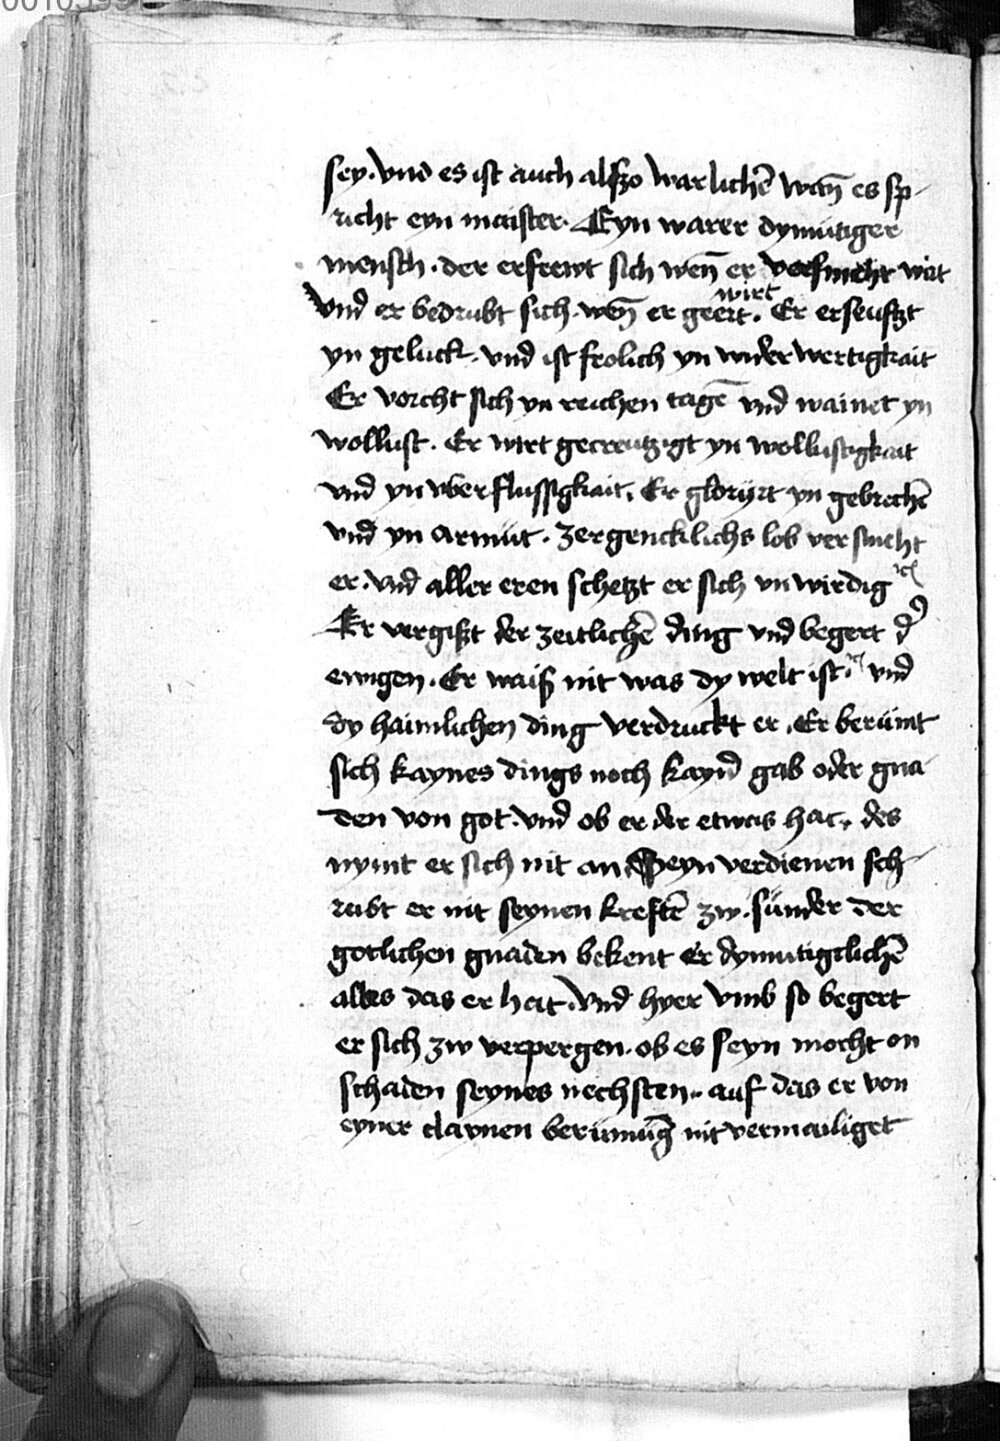 sey. vnd es ist auch alszo warlichē wan̄ es sp-
richt eyn maister. Eyn warer dymütiger
mensch. der erfrewt sich wen̄ er versmeht wirt
vnd er bedrubt sich. wen̄ er geert wirt. Er erseuftzt
yn geluck. vnd ist frolich yn widerwertigkait
Er vorcht sich yn reichen tagē vnd wainet yn
wollust. Er wirt gecreutzigt yn wollustigkait
vnd yn vberflussigkait. Er gloryrt yn gebrechē
vnd yn armüt. zergencklichs lob versmeht
er. vnd aller eren schetzt er sich vnwirdig
Er vergiszt der zeitlichē ding vnd begert d'
ewigen. Er waiß nit was dy welt ist. vnd
dy haimlichen ding verdruckt er. Er berümt
sich kaynes dings noch kayn' gab oder gna-
den von got. vnd ob er der etwas hat. des
nymt er sich nit an Seyn verdienen sch-
ribt er nit seynen kreftē zw. sünder der
gotlichen gnaden bekent er dymutigtlichē
alles das er hat. vnd hyer vmb so begert
er sich zw verpergen. ob es seyn mocht on
schaden seynes nechsten. auf das er von
eyner claynen berümūg nit vermailiget